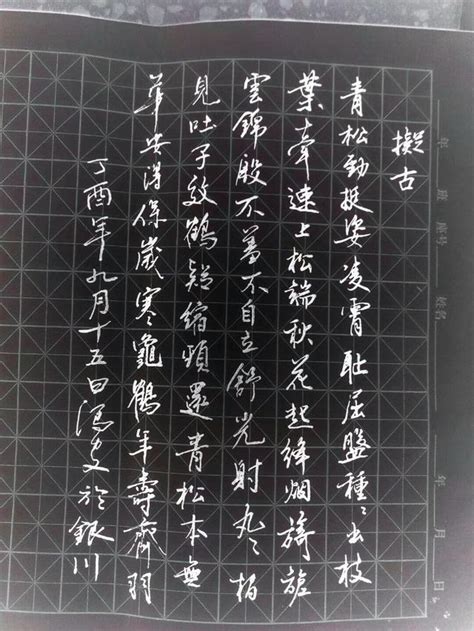 擬古
青松勁挺姿凌霄耻屈盤種〻出枝
葉牽連上松端秋花起絳烟旖旎
雲錦殷不羞不自立舒光射丸〻柏
見吐子效鶴疑縮頸還青松本無
華安得保歲寒龜鶴年壽齊羽
丁酉年九月十五日於銀川
姓名
年 月 日